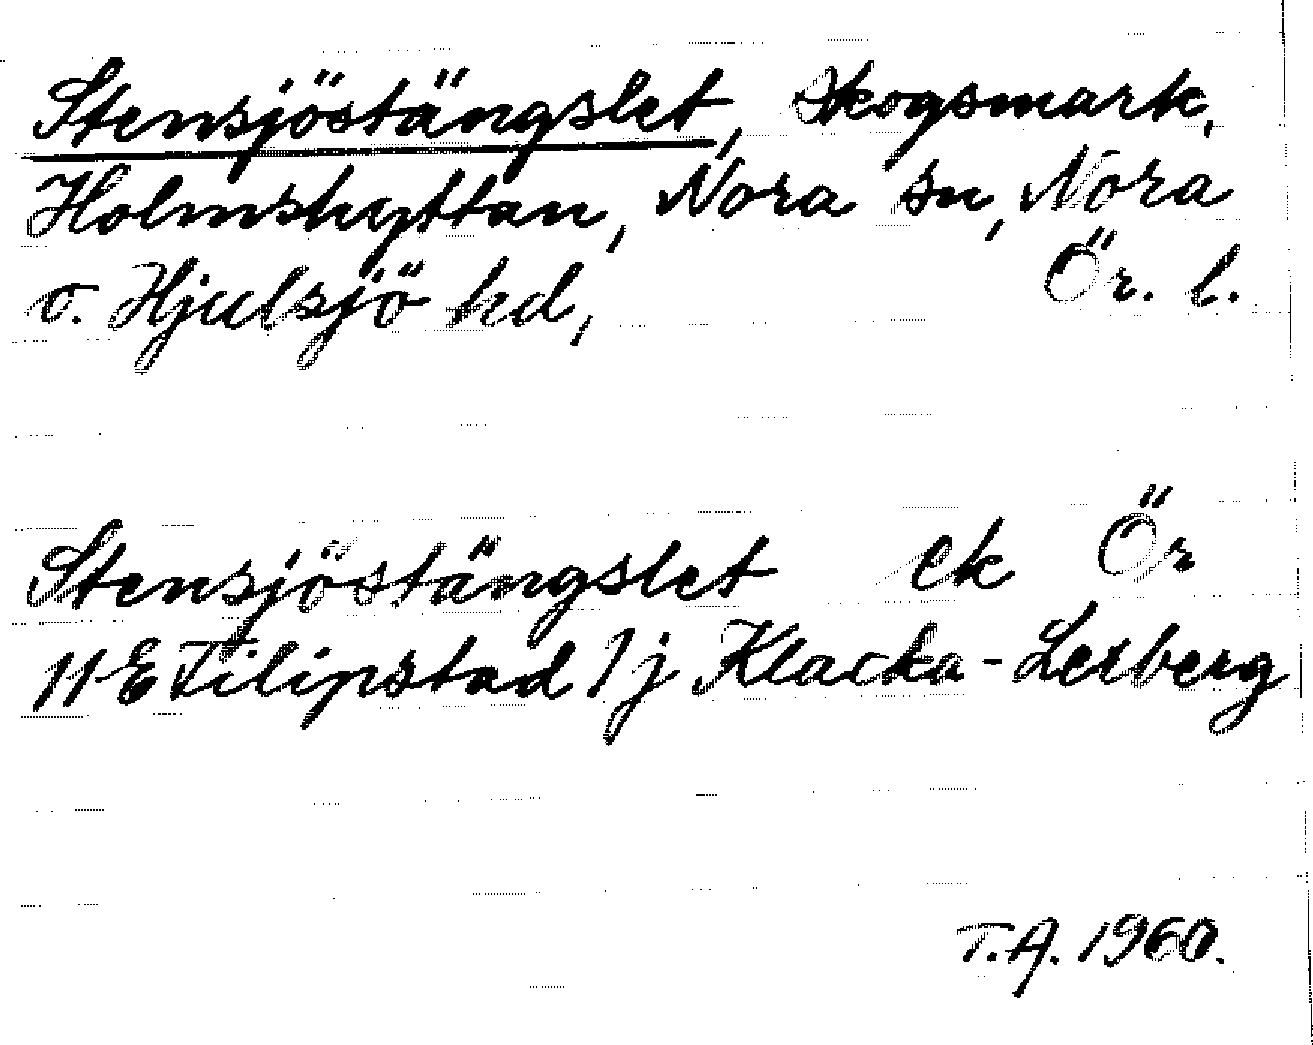 Stensjöstängslet, skogsmark,
Holmshyttan, Nora sn, Nora
o. Hjulsjö hd, Ör. l.
Stensjöstängslet ek Ör
11E Filipstad 1j Klacka-Lerberg
T.A. 1960.